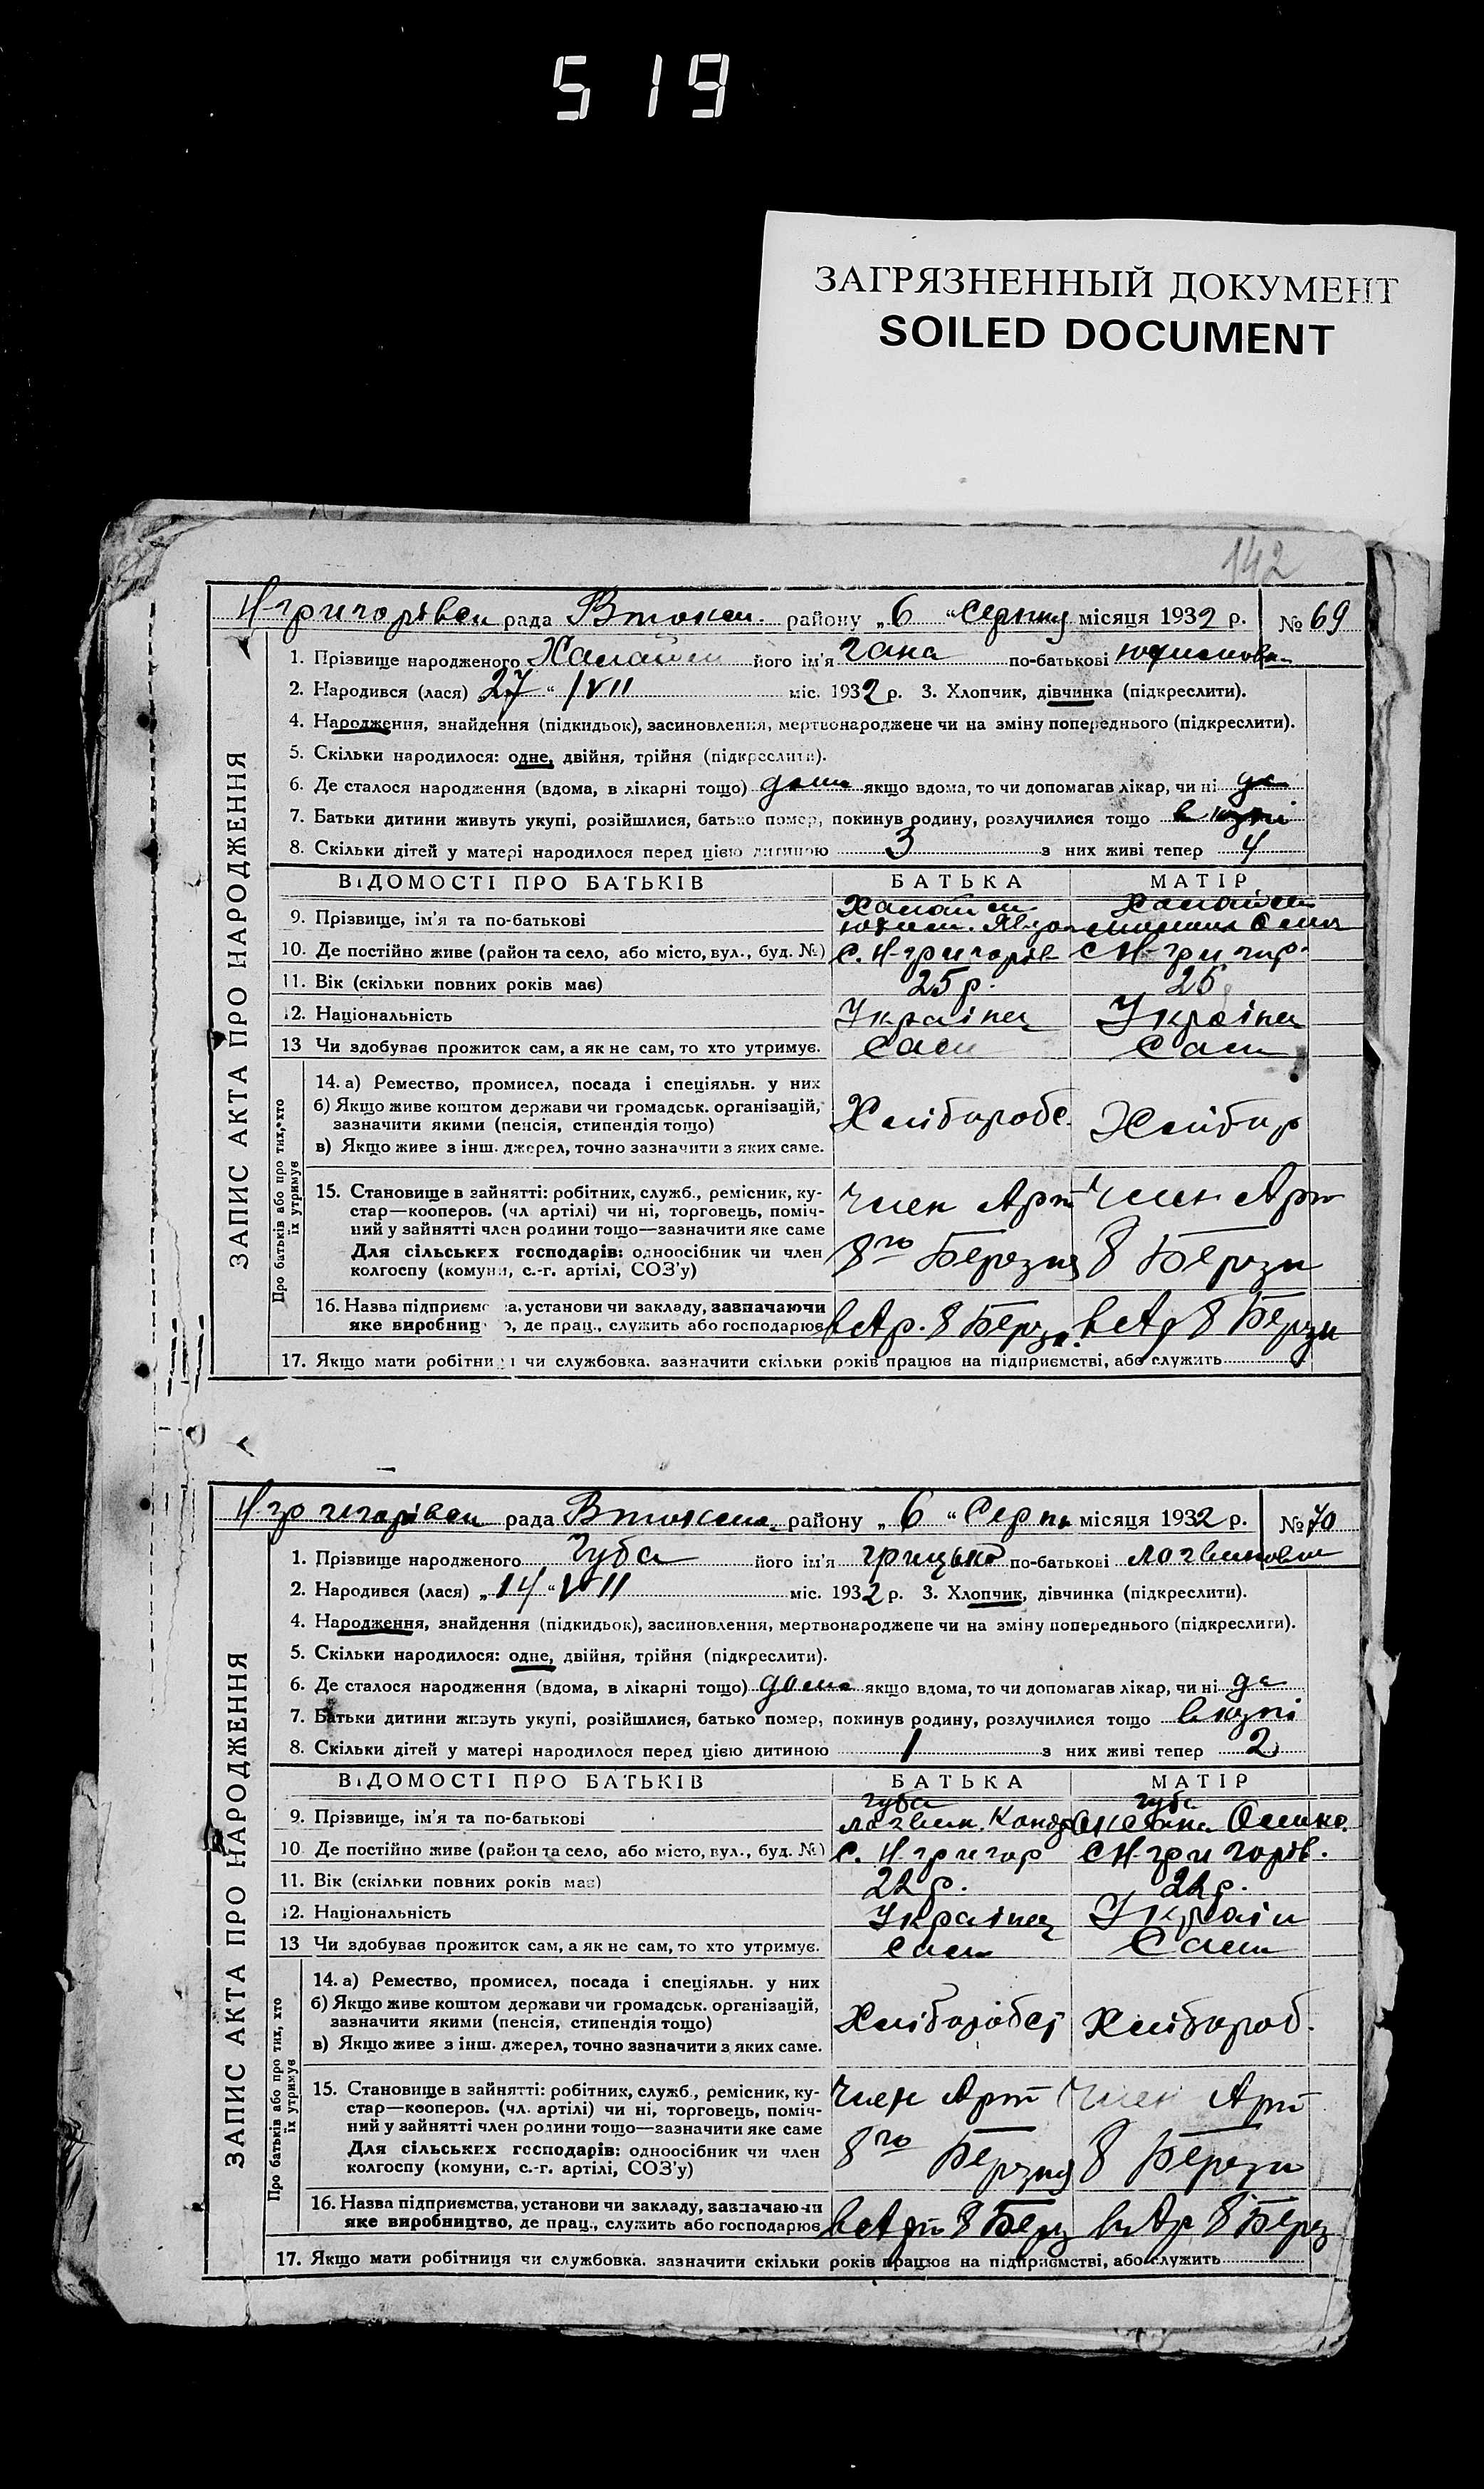 519
ЗАГРЯЗНЕННЫЙ ДОКУМЕНТ
SOILED DOCUMENT
142
ЗАПИС АКТА ПРО НАРОДЖЕННЯ
Н-григорівськ рада району „6 “ Серпня місяця 1932 р. № 69
1. Прізвище народженого його ім'я Гана по-батькові
2. Народився (лася) „27 “ VII міс. 1932 р. 3. Хлопчик, дівчинка (підкреслити).
4. Народження, знайдення (підкидьок), засиновлення, мертвонароджене чи на зміну попереднього (підкреслити).
5. Скільки народилося: одне, двійня, трійня (підкреслити).
6. Де сталося народження (вдома, в лікарні тощо) дома якщо вдома, то чи допомагав лікар, чи ні да
7. Батьки дитини живуть укупі, розійшлися, батько помер, покинув родину, розлучилися тощо в купі
8. Скільки дітей у матері народилося перед цією дитиною 3 з них живі тепер 4
ВІДОМОСТІ ПРО БАТЬКІВ БАТЬКА МАТІР
9. Прізвище, ім'я та по-батькові
10. Де постійно живе (район та село, або місто, вул., буд. №) С. Н-григорів С Н-григор.
11. Вік (скільки повних років має) 25 р. 25
12. Національність Українец Українк
13 Чи здобуває прожиток сам, а як не сам, то хто утримує. Сам Сам
Про батьків або про тих, хто їх утримує
14. а) Ремество, промисел, посада і спеціяльн. у них
б) Якщо живе коштом держави чи громадськ. організацій,
зазначити якими (пенсія, стипендія тощо) Хлібороб. Хлібор
в) Якщо живе з інш. джерел, точно зазначити з яких саме.
15. Становище в зайнятті: робітник, служб., ремісник, ку-
стар—кооперов. (чл. артілі) чи ні, торговець, поміч- Член Арт Член Арт
ний у зайнятті член родини тощо—зазначити яке саме
Для сільських господарів: одноосібник чи член 8го Березня 8 Березн
колгоспу (комуни, с.-г. артілі, СОЗ'у)
16. Назва підприємства, установи чи закладу, зазначаючи
яке виробництво, де прац., служить або господарює в Ар. 8 Берез. в Ар 8 Березн
17. Якщо мати робітниця чи службовка. зазначити скільки років працює на підприємстві, або служить
ЗАПИС АКТА ПРО НАРОДЖЕННЯ
Н-григорівськ рада району „6 “ Серпн місяця 1932 р. № 70
1. Прізвище народженого Губа його ім'я Грицько по-батькові Логвинович
2. Народився (лася) „14 “ VII міс. 1932 р. 3. Хлопчик, дівчинка (підкреслити).
4. Народження, знайдення (підкидьок), засиновлення, мертвонароджене чи на зміну попереднього (підкреслити).
5. Скільки народилося: одне, двійня, трійня (підкреслити).
6. Де сталося народження (вдома, в лікарні тощо) дома якщо вдома, то чи допомагав лікар, чи ні да
7. Батьки дитини живуть укупі, розійшлися, батько помер, покинув родину, розлучилися тощо в купі
8. Скільки дітей у матері народилося перед цією дитиною 1 з них живі тепер 2
ВІДОМОСТІ ПРО БАТЬКІВ БАТЬКА МАТІР
Губа Губа
9. Прізвище, ім'я та по-батькові Логвин. Кондр
10 Де постійно живе (район та село, або місто, вул., буд. №) С. Н-григор С Н-григорів.
11. Вік (скільки повних років має) 22 р. 22 р.
12. Національність Українец Україн
13 Чи здобуває прожиток сам, а як не сам, то хто утримує. Сам Сам
Про батьків або про тих, хто їх утримує
14. а) Ремество, промисел, посада і спеціяльн. у них
б) Якщо живе коштом держави чи громадськ. організацій,
зазначити якими (пенсія, стипендія тощо) Хліборобст Хлібороб.
в) Якщо живе з інш. джерел, точно зазначити з яких саме.
15. Становище в зайнятті: робітник, служб., ремісник, ку-
стар—кооперов. (чл. артілі) чи ні, торговець, поміч- Член Арт Член Арт
ний у зайнятті член родини тощо—зазначити яке саме
Для сільських господарів: одноосібник чи член 8го Березня 8 Березн
колгоспу (комуни, с.-г. артілі, СОЗ'у)
16. Назва підприємства, установи чи закладу, зазначаючи
яке виробництво, де прац., служить або господарює в Арт 8 Берез в Ар 8 Берез
17. Якщо мати робітниця чи службовка. зазначити скільки років працює на підприємстві, або служить